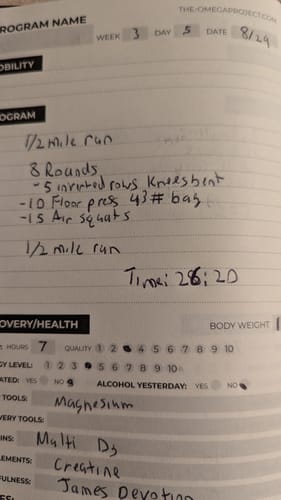 THE-OMEGAPROJECT.COM
ROGRAM NAME
WEEK 3 DAY 5 DATE 8/29
OBILITY
OGRAM
1/2 mile run
8 Rounds
-5 inverted rows Knees bent
-10 Floor press 43# bag
-15 Air squats
1/2 mile run
Time: 26:20
OVERY/HEALTH BODY WEIGHT
HOURS 7 QUALITY 1 2 4 5 6 7 8 9 10
GY LEVEL: 1 2 3 5 6 7 8 9 10
ATED: YES NO ALCOHOL YESTERDAY: YES NO
TOOLS: Magnesium
VERY TOOLS:
INS: Multi D3
LEMENTS: Creatine
FULNESS: James Devotion